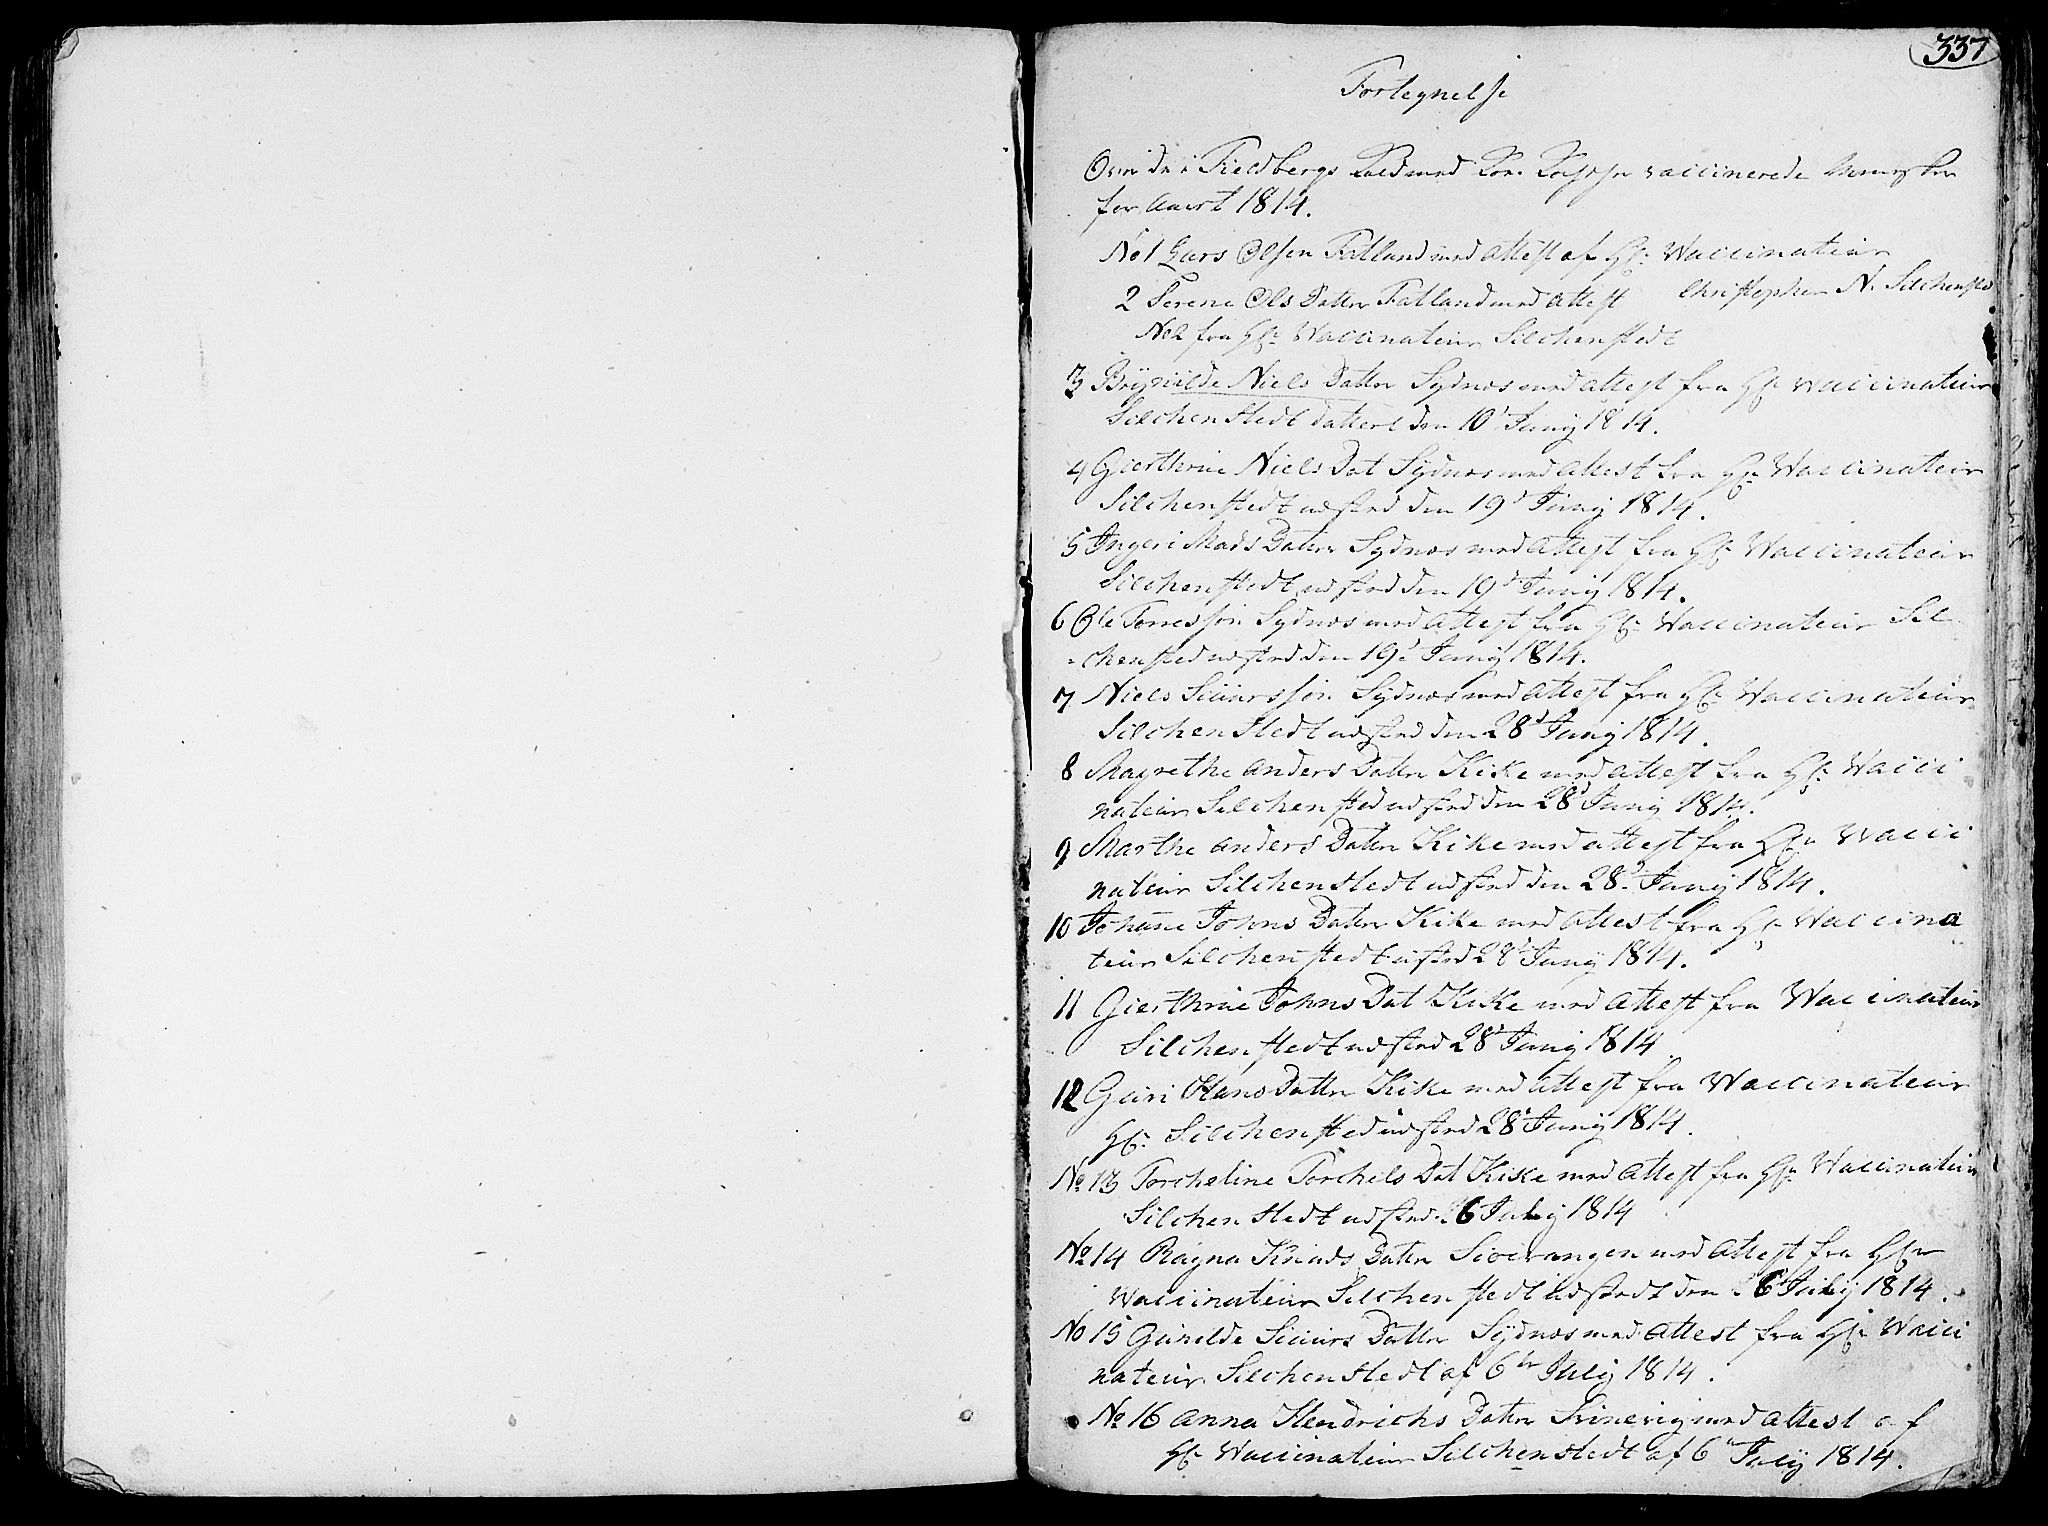 337
Fortegnelse
Over de i Fieldbergs Kald med Koe Kopper vaccinerede Mennesker
for Aaret 1814.
No 1 Lars Olsen Fatland med Attest af Hr. Vaccinateur
Christopher N. Silchensted
2 Serene Ols Datter Fatland med Attest
No 2 fra Hr. Vaccinateur Silchenstedt
3 Brynilde Niels Datter Sydnes med Attest fra Hr. Vaccinateur
Silchenstedt dattert den 10d Junij 1814.
4 Gierthrue Niels Dat Sydnes med Attest fra Hr. Vaccinateur
Silchenstedt udsted den 19d Junij 1814.
5 Ingeri Mads Datter Sydnes med Attest fra Hr. Vaccinateur
Silchenstedt udsted den 19d Junij 1814.
6 Ole Torressøn Sydnes med Attest fra Hr. Vaccinateur Sil
-chensted udsted den 19d Junij 1814.
7 Niels Siursøn Sydnes med Attest fra Hr. Vaccinateur
Silchenstedt udsted den 28d Junij 1814.
8 Magrethe Anders Datter Kike med Attest fra Hr. Vacci
nateur Silchensted udsted den 28d Junij 1814.
9 Marthe Anders Datter Kike med Attest fra Hr. Vacci
nateur Silchenstedt udsted den 28d Junij 1814.
10 Johane Johns Datter Kike med Attest fra Hr. Vaccina
teur Silchenstedt usted 28d Junij 1814.
11 Gierthrue Johns Dat Kike med Attest fra Vaccinateur
Silchenstedt udsted 28d Junij 1814
12 Guri Hans Datter Kike med Attest fra Vaccinateur
Hr. Silchensted udsted 28d Junij 1814.
No 13 Torcheline Torchels Dat Kike med Attest fra Hr. Vaccinateur
Silchenstedt udsted 6 Julij 1814
No 14 Ragna Knuds Datter med Attest fra Hr
Vaccinateur Silchenstedt udstedt den 6 Julij 1814.
No 15 Gunilde Siurs Datter Sydnes med Attest fra Hr. Vacci
nateur Silchenstedt af 6te Julij 1814.
No 16 Anna Hendrichs Datter med Attest af
Hr. Vaccinateur Silchenstedt af 6te Julij 1814.